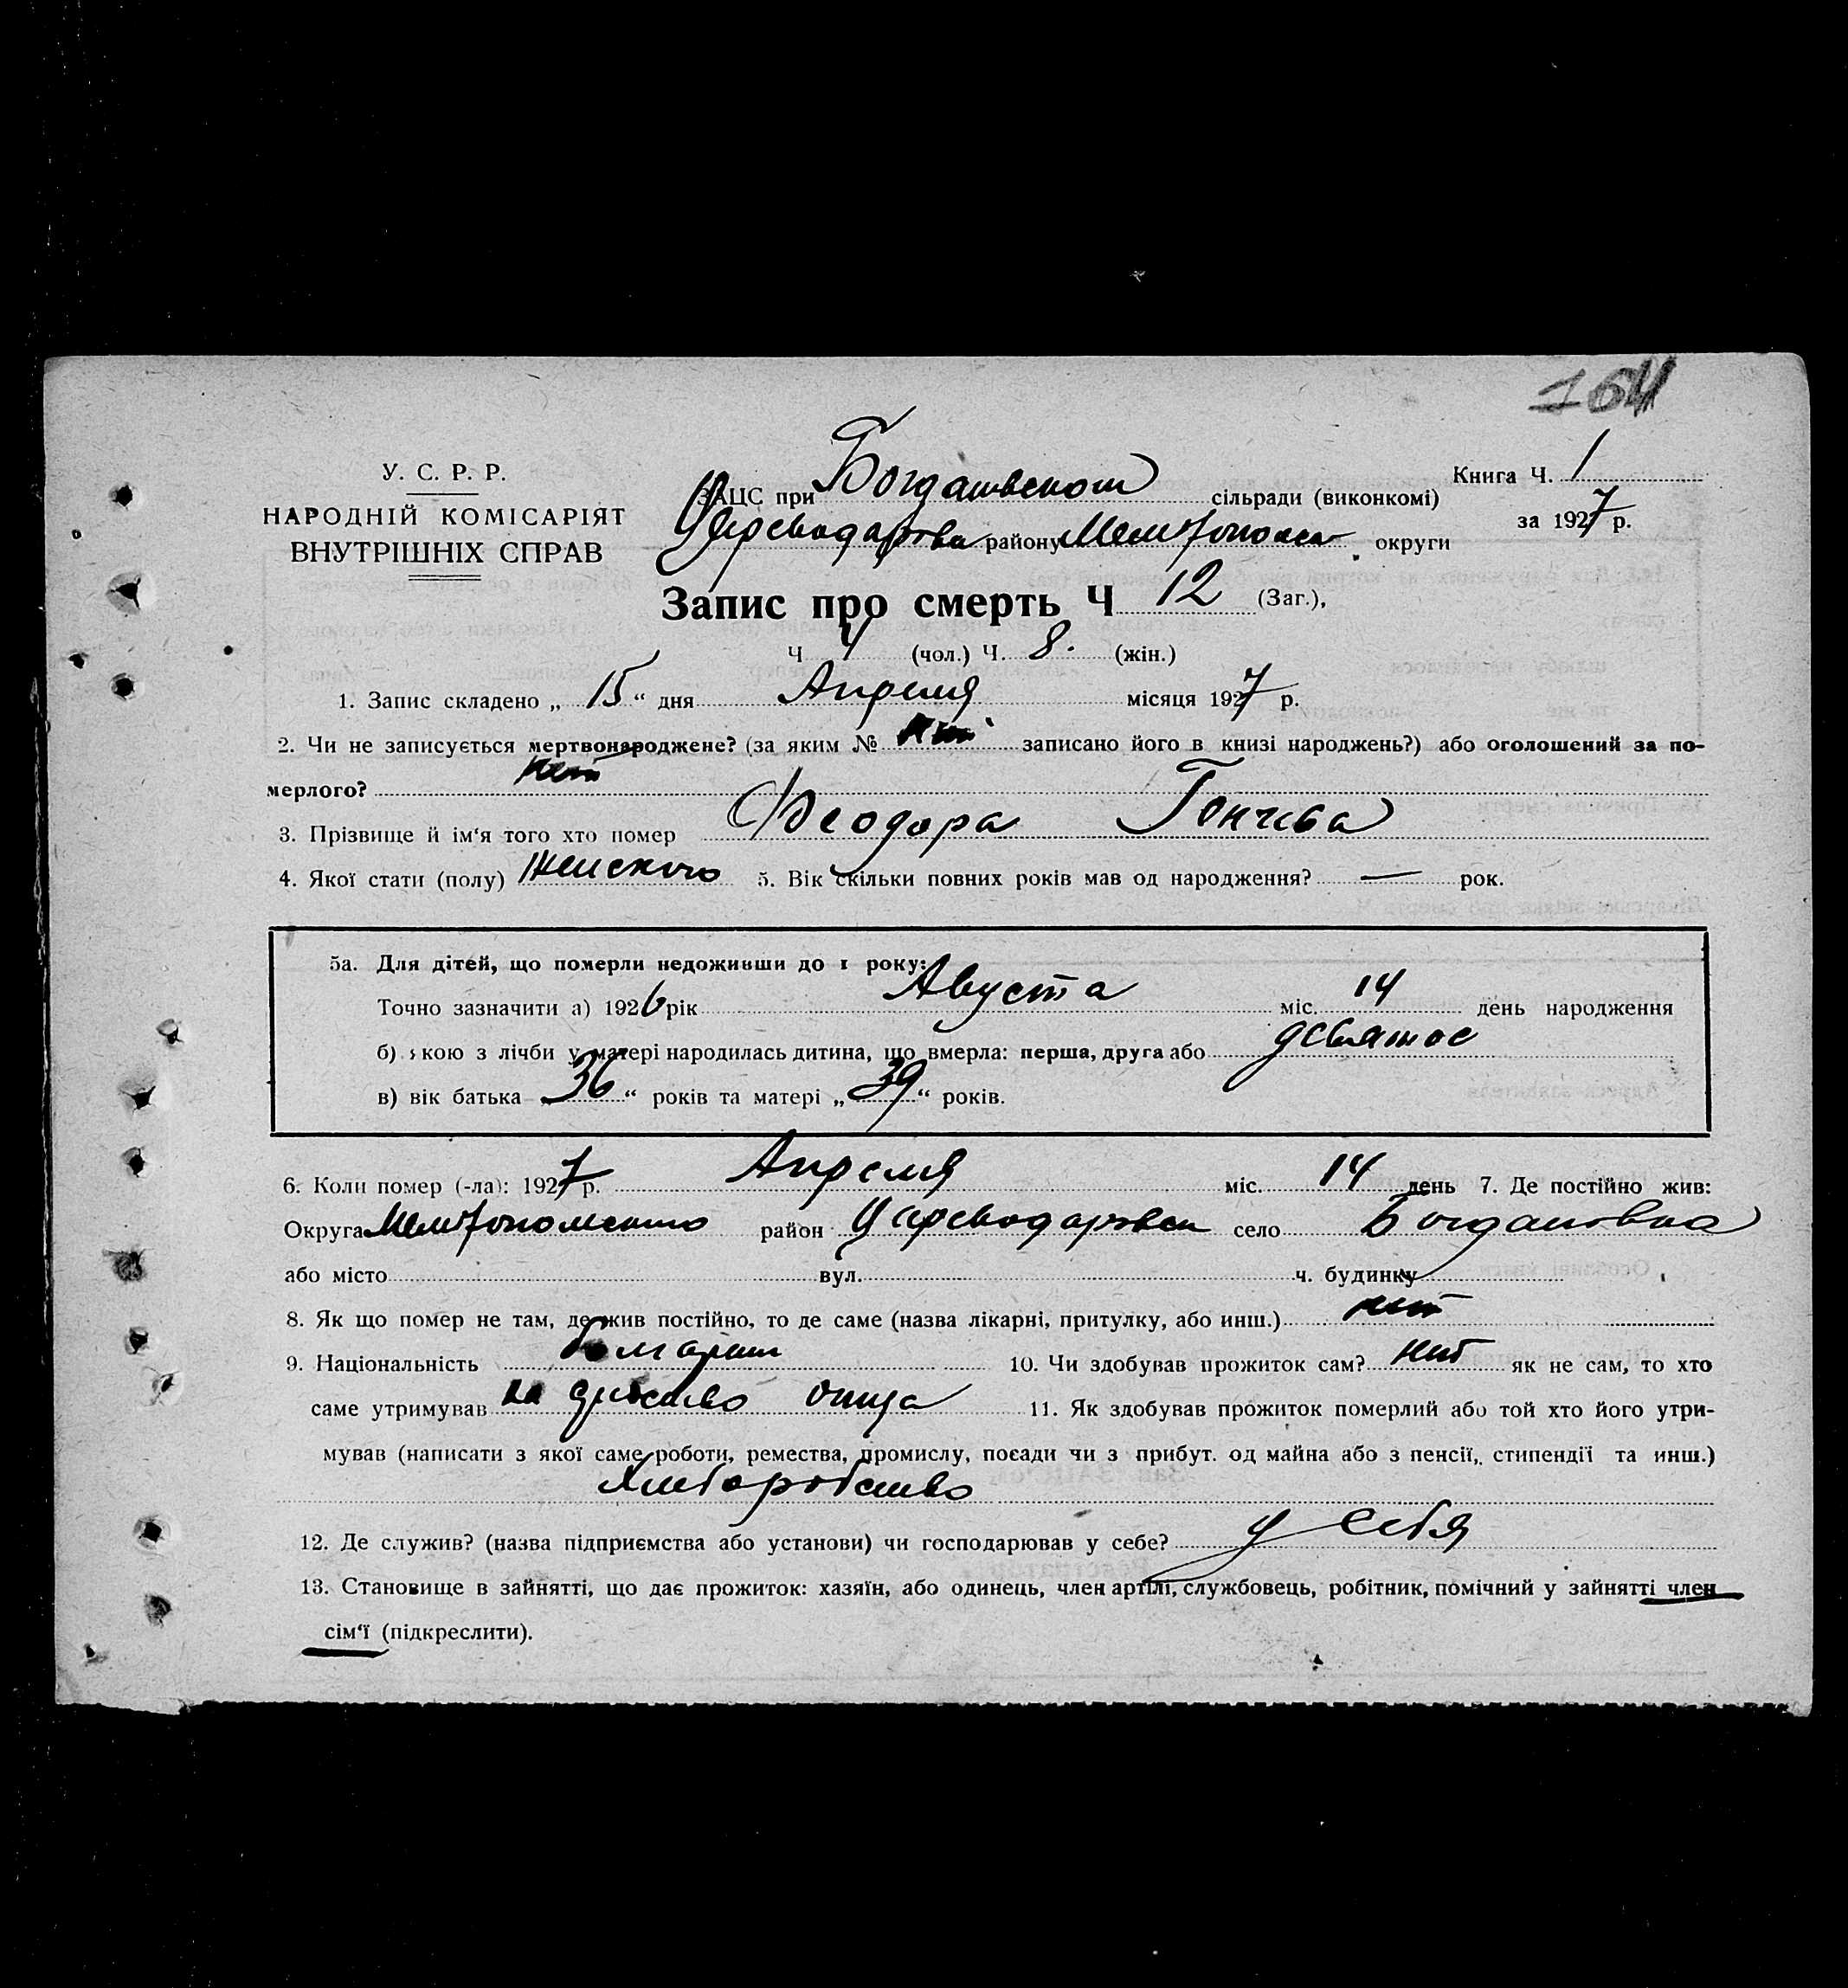 164
У. С. Р. Р.
НАРОДНІЙ КОМІСАРІЯТ
ВНУТРІШНІХ СПРАВ
ЗАЦС при Богдановском сільради (виконкомі)
району Мелитополь округи
Книга Ч. 1
за 1927 р.
Запис про смерть Ч 12 (Заг.),
Ч 4 (чол.) Ч. 8. (жін.)
1. Запис складено „ 15 “ дня Апреля місяця 1927 р.
2. Чи не записується мертвонароджене? (за яким № нет записано його в книзі народжень?) або оголошений за по-
мерлого? нет
3. Прізвище й ім'я того хто помер Феодора Гончева
4. Якої стати (полу) Женского 5. Вік скільки повних років мав од народження? — рок.
5а. Для дітей, що померли недоживши до 1 року:
Точно зазначити а) 1926 рік Августа міс. 14 день народження
б) якою з лічби у матері народилась дитина, що вмерла: перша, друга або девятое
в) вік батька „ 36 “ років та матері „ 39 “ років.
6. Коли помер (-ла): 1927 р. Апреля міс. 14 день 7. Де постійно жив:
Округа район село Богдановка
або місто вул. ч. будинку
8. Як що помер не там, де жив постійно, то де саме (назва лікарні, притулку, або инш.) нет
9. Національність Болгарин 10. Чи здобував прожиток сам? нет як не сам, то хто
саме утримував на средство отца 11. Як здобував прожиток померлий або той хто його утри-
мував (написати з якої саме роботи, ремества, промислу, посади чи з прибут. од майна або з пенсії, стипендії та инш.)
Хлеборобство
12. Де служив? (назва підприємства або установи) чи господарював у себе? у себя
13. Становище в зайнятті, що дає прожиток: хазяїн, або одинець, член артілі, службовець, робітник, помічний у зайнятті член
сім'ї (підкреслити).